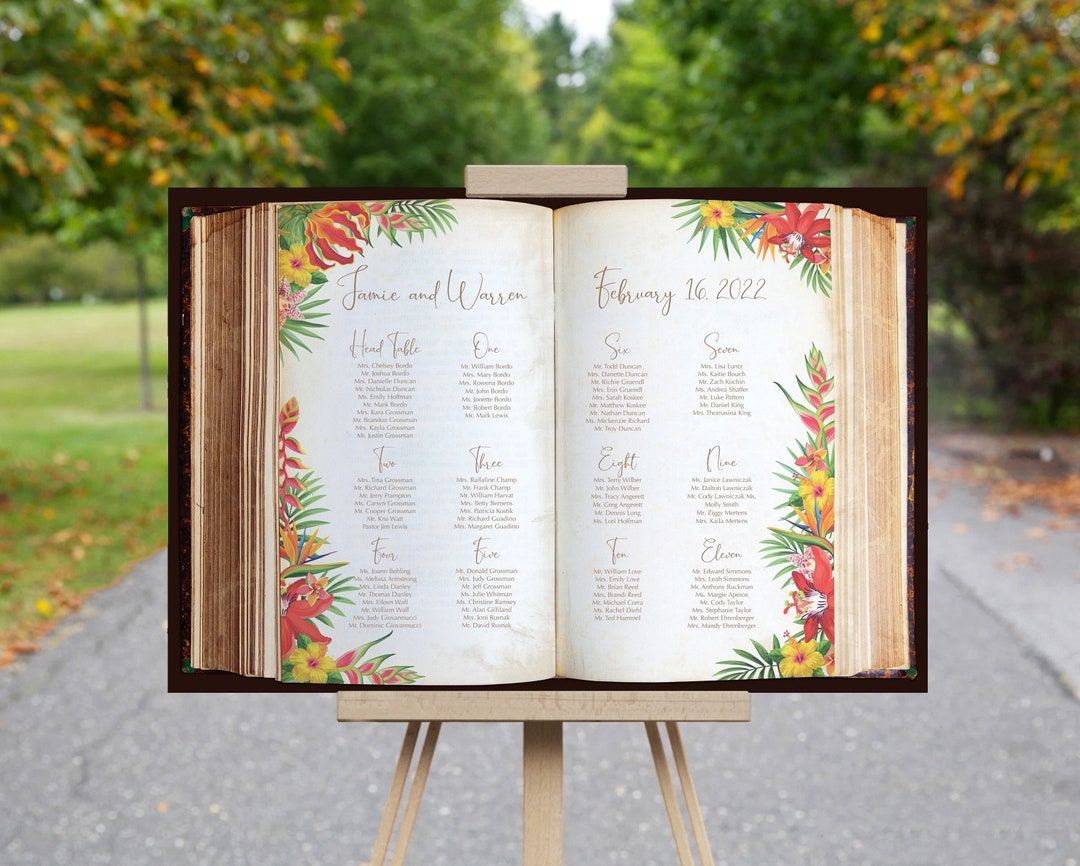 Jamie and Warren
Head Table
Mrs. Chelsey Bordo
Mr. Joshua Bordo
Mrs. Danielle Duncan
Mr. Nicholas Duncan
Ms. Emily Hoffman
Mr. Mark Bordo
Mrs. Kara Grossman
Mr. Brandon Grossman
Mrs. Kayla Grossman
Mr. Justin Grossman
One
Mr. William Bordo
Mrs. Mary Bordo
Mrs. Rowena Bordo
Mr. John Bordo
Ms. Jonette Bordo
Mr. Robert Bordo
Mr. Mark Lewis
Two
Mrs. Tina Grossman
Mr. Richard Grossman
Mr. Jerry Frampton
Ms. Carsyn Grossman
Mr. Cooper Grossman
Mr. Kris Watt
Pastor Jim Lewis
Three
Mrs. Raffaline Champ
Mr. Frank Champ
Mr. William Harvat
Mrs. Betty Bernens
Mrs. Patricia Kostik
Mr. Richard Guadino
Mrs. Margaret Guadino
Four
Mrs. Joann Behling
Ms. Melissa Armstrong
Mrs. Linda Danley
Mr. Thomas Danley
Mrs. Eileen Wall
Mr. William Wall
Mrs. Judy Giovannucci
Mr. Dominic Giovannucci
Five
Mr. Donald Grossman
Mrs. Judy Grossman
Mr. Jeff Grossman
Mrs. Julie Whitman
Ms. Christine Ramsey
Mr. Alan Gilliland
Mrs. Joni Rusnak
Mr. David Rusnak
February 16, 2022
Six
Mr. Todd Duncan
Mrs. Danette Duncan
Mr. Richie Gruendl
Mrs. Erin Gruendl
Mrs. Sarah Koskee
Mr. Matthew Koskee
Mr. Nathan Duncan
Ms. Mickenzie Richard
Mr. Troy Duncan
Seven
Mrs. Lisa Luntz
Ms. Kaitie Bouch
Mr. Zach Kochin
Ms. Andrea Shaffer
Mr. Luke Pattern
Mr. Daniel King
Mrs. Thomasina King
Eight
Mrs. Terry Wilber
Mr. John Wilber
Mrs. Tracy Angerett
Mr. Greg Angerett
Mr. Dennis Long
Ms. Lori Hollman
Nine
Ms. Janice Lawniczak
Mr. Dalton Lawniczak
Mr. Cody Lawniczak Ms.
Molly Smith
Mr. Ziggy Mertens
Mrs. Karla Mertens
Ten
Mr. William Love
Mrs. Emily Love
Mr. Brian Reed
Mrs. Brandi Reed
Mr. Michael Corra
Ms. Rachel Diehl
Mr. Ted Hammel
Eleven
Mr. Edward Simmons
Mrs. Leah Simmons
Mr. Anthony Ruckman
Ms. Margie Apesos
Mr. Cody Taylor
Mrs. Stephanie Taylor
Mr. Robert Ehrenberger
Mrs. Mandy Ehrenberger